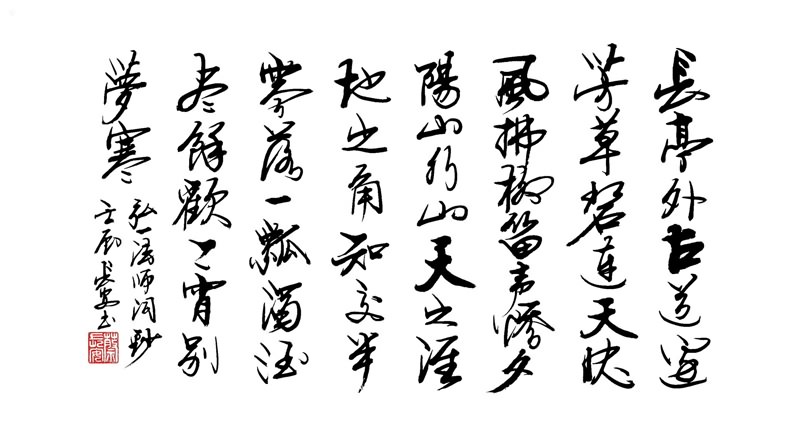 長亭外古道邊
芳草碧連天晚
風拂柳笛声殘夕
陽山外山天之涯
地之角知交半
零落一瓢濁酒
尽餘歡今宵別
夢寒
弘一法師詞鈔